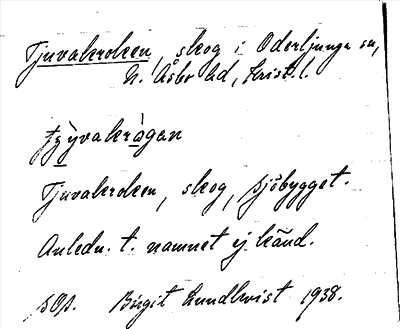 Tjuvakroken, skog i Oderljunga sn,
N. Åsbo hd, Krist. l.
tjy̌vakrògan
Tjuvakroken, skog, Sjöbygget.
Anledn. t. namnet ej känd.
sop. Birgit Lundkvist 1938.